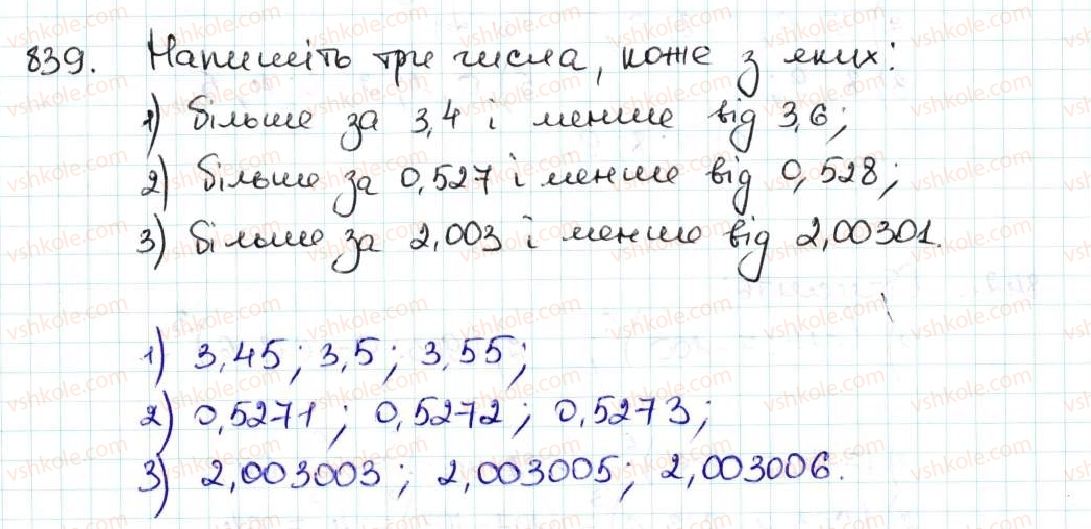 839. Напишіть три числа, коже з яких:
1) більше за 3,4 і менше від 3,6;
2) більше за 0,527 і менше від 0,528;
3) більше за 2,003 і менше від 2,00301.
1) 3,45; 3,5; 3,55;
2) 0,5271; 0,5272; 0,5273;
3) 2,003003; 2,003005; 2,003006.